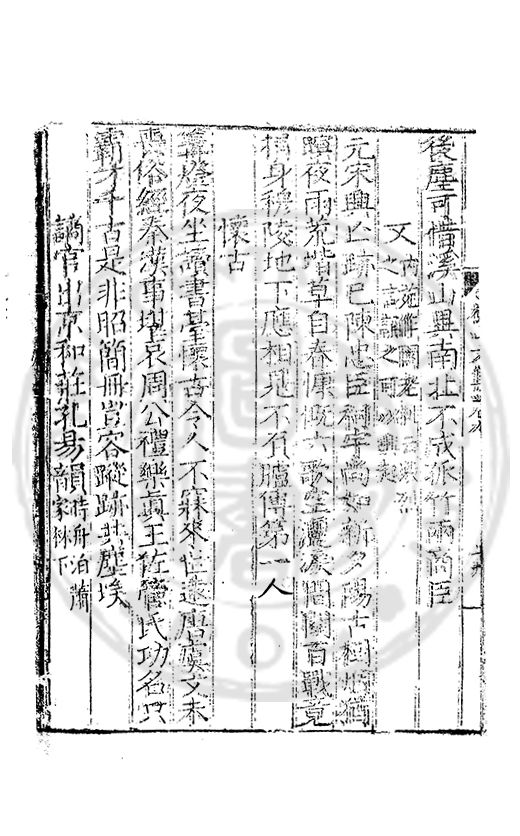 後塵可惜溪山與南北不成派竹兩商臣
又
元宋興亡跡已陳忠臣祠宇尚如新夕陽古樹烟猶
暝夜雨荒堦草自春慷慨六歌空灑淚間關百戰竟
捐身穆陵地下應相見不負臚傳第一人
懷古
篝燈夜坐讀書臺懷古令人不寐來往還唐虞文未
喪俗經秦漢事堪哀周公禮樂真王佐管氏功名只
霸才千古是非昭簡冊豈容蹤跡共塵埃
謫官出京和莊孔易韻
時舟泊蕭
家林下